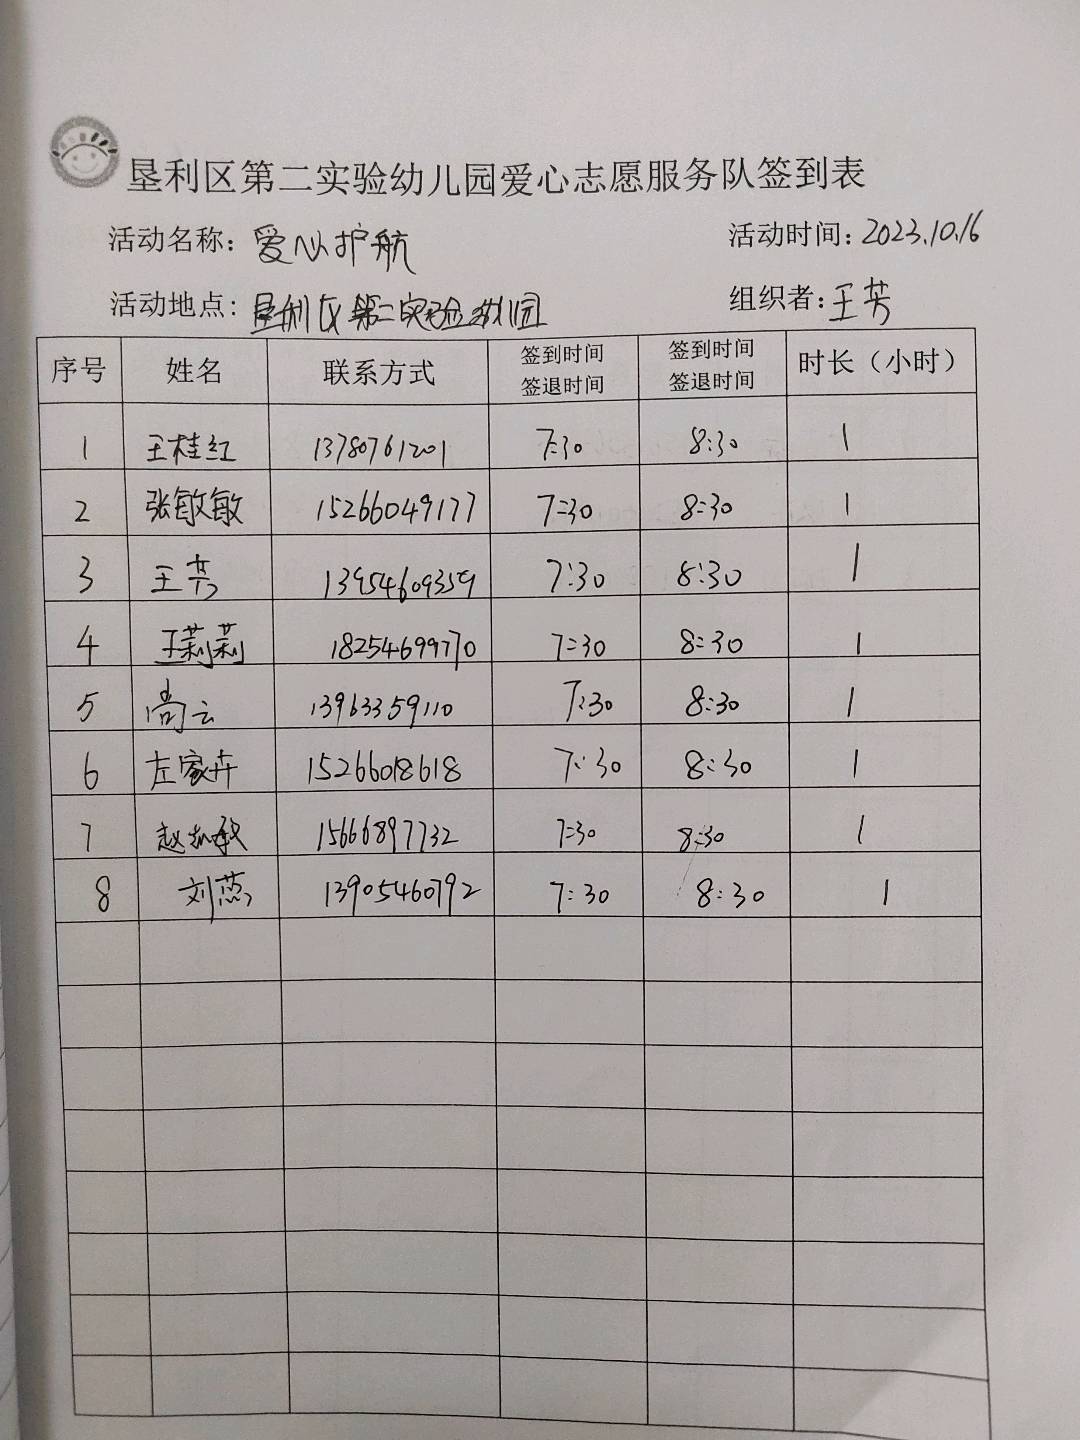 垦利区第二实验幼儿园爱心志愿服务队签到表
活动名称：爱心护航 活动时间：2023.10.16
活动地点：垦利区第二实验幼儿园 组织者：王芳
序号 姓名 联系方式 签到时间 签退时间 签到时间 签退时间 时长（小时）
1 王桂红 13780761201 7:30 8:30 1
2 张敏敏 15266049177 7:30 8:30 1
3 王芳 13954609359 7:30 8:30 1
4 王莉莉 18254699770 7:30 8:30 1
5 尚云 13963359110 7:30 8:30 1
6 左家卉 15266018618 7:30 8:30 1
7 赵 15666897732 7:30 8:30 1
8 刘燕 13905460792 7:30 8:30 1